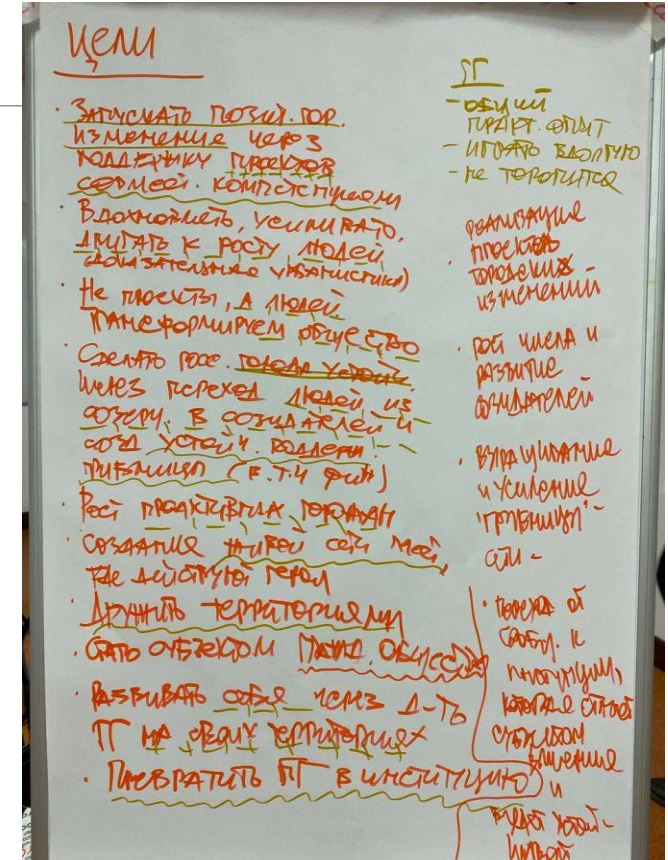 Цели
· Запускать позит. гор.
изменение через
поддержку проектов
компетенциями
· Вдохновлять, усиливать,
двигать к росту людей
(доказательная урбанистика)
· Не проекты, а людей
трансформируем общество
Сделать росс. города устойч.
через переход людей из
созерц. в созидателей и
созд. устойч. поддерж.
грибницы (в.т.ч фин)
Рост проактивных горожан
создание живой сети
где действуют герои
· Дружить территориями
· Стать субъектом общества
· Развивать себя через д-ть
ПГ на своих территориях
· Превратить ПГ в институцию
ПГ
- общий
практ. опыт
- играть вдолгую
- не торопиться
· реализация
проектов
городских
изменений
· рост числа и
развитие
созидателей
· выращивание
и усиление
"грибницы"-
сети -
· переход от
сообщ. к
институции,
которая станет
субъектом
влияния
и
будет устой-
чивой